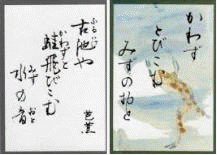 ふるいけ
古池や
芭蕉
かわずと
蛙飛びこむ
みず おと
水の音
かわず
とびこむ
みずのおと